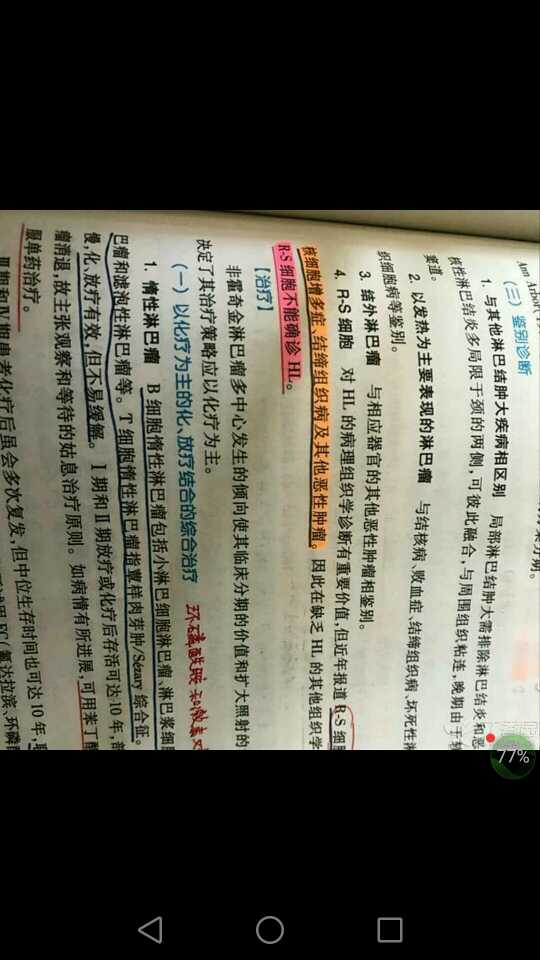 Ann Arbor
（三）鉴别诊断
1. 与其他淋巴结肿大疾病相区别 局部淋巴结肿大需排除淋巴结炎和恶
核性淋巴结炎多局限于颈的两侧,可彼此融合,与周围组织粘连,晚期由于软
窦道。
2. 以发热为主要表现的淋巴瘤 与结核病、败血症、结缔组织病、坏死性淋
织细胞病等鉴别。
3. 结外淋巴瘤 与相应器官的其他恶性肿瘤相鉴别。
4. R-S 细胞 对 HL 的病理组织学诊断有重要价值,但近年报道 R-S 细胞
核细胞增多症、结缔组织病及其他恶性肿瘤。因此在缺乏 HL 的其他组织学
R-S 细胞不能确诊 HL。
【治疗】
非霍奇金淋巴瘤多中心发生的倾向使其临床分期的价值和扩大照射的
决定了其治疗策略应以化疗为主。
（一）以化疗为主的化、放疗结合的综合治疗 环磷酰胺和
1. 惰性淋巴瘤 B 细胞惰性淋巴瘤包括小淋巴细胞淋巴瘤、淋巴浆细胞
巴瘤和滤泡性淋巴瘤等。T 细胞惰性淋巴瘤指蕈样肉芽肿/Sezary 综合征。
慢,化、放疗有效,但不易缓解。Ⅰ期和Ⅱ期放疗或化疗后存活可达 10 年,部
瘤消退,故主张观察和等待的姑息治疗原则。如病情有所进展,可用苯丁酸
服单药治疗。
Ⅲ期和Ⅳ期患者化疗后虽会多次复发,但中位生存时间也可达 10 年,联
FC(氟达拉滨、环磷酰
77%